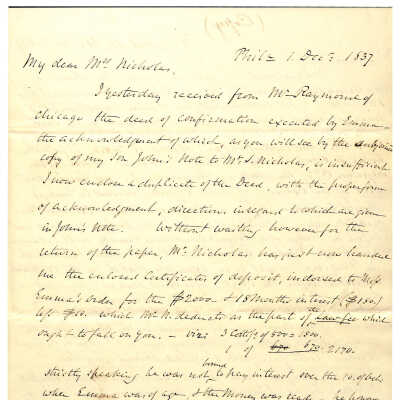 (Copy)
Phila 1. Decr. 1837
My dear Mrs Nicholas,
I yesterday received from Mr Raymond of
Chicago the deed of confirmation executed by Emma—
the acknowledgment of which, as you will see by the
copy of my Son John's Note to Mr. S. Nicholas, is insufficient
I now enclose a duplicate of the Deed, with the proper form
of acknowledgment, directions in regard to which are given
in John's Note. Without waiting however for the
return of the paper, Mr. Nicholas has just now handed
me the enclosed Certificates of deposit, indorsed to Miss
Emma's order for the $2000 & 18 Months interest ($180)
less $10. which Mr. N. deducts as the part of the Law fee which
ought to fall on you. – viz: 3 Certifs of 600 = 1800.
1 of 370 370. 2170.
strictly speaking he was not bound to pay interest over the 10. of Octr
when Emma was of age & the Money was ready – he however